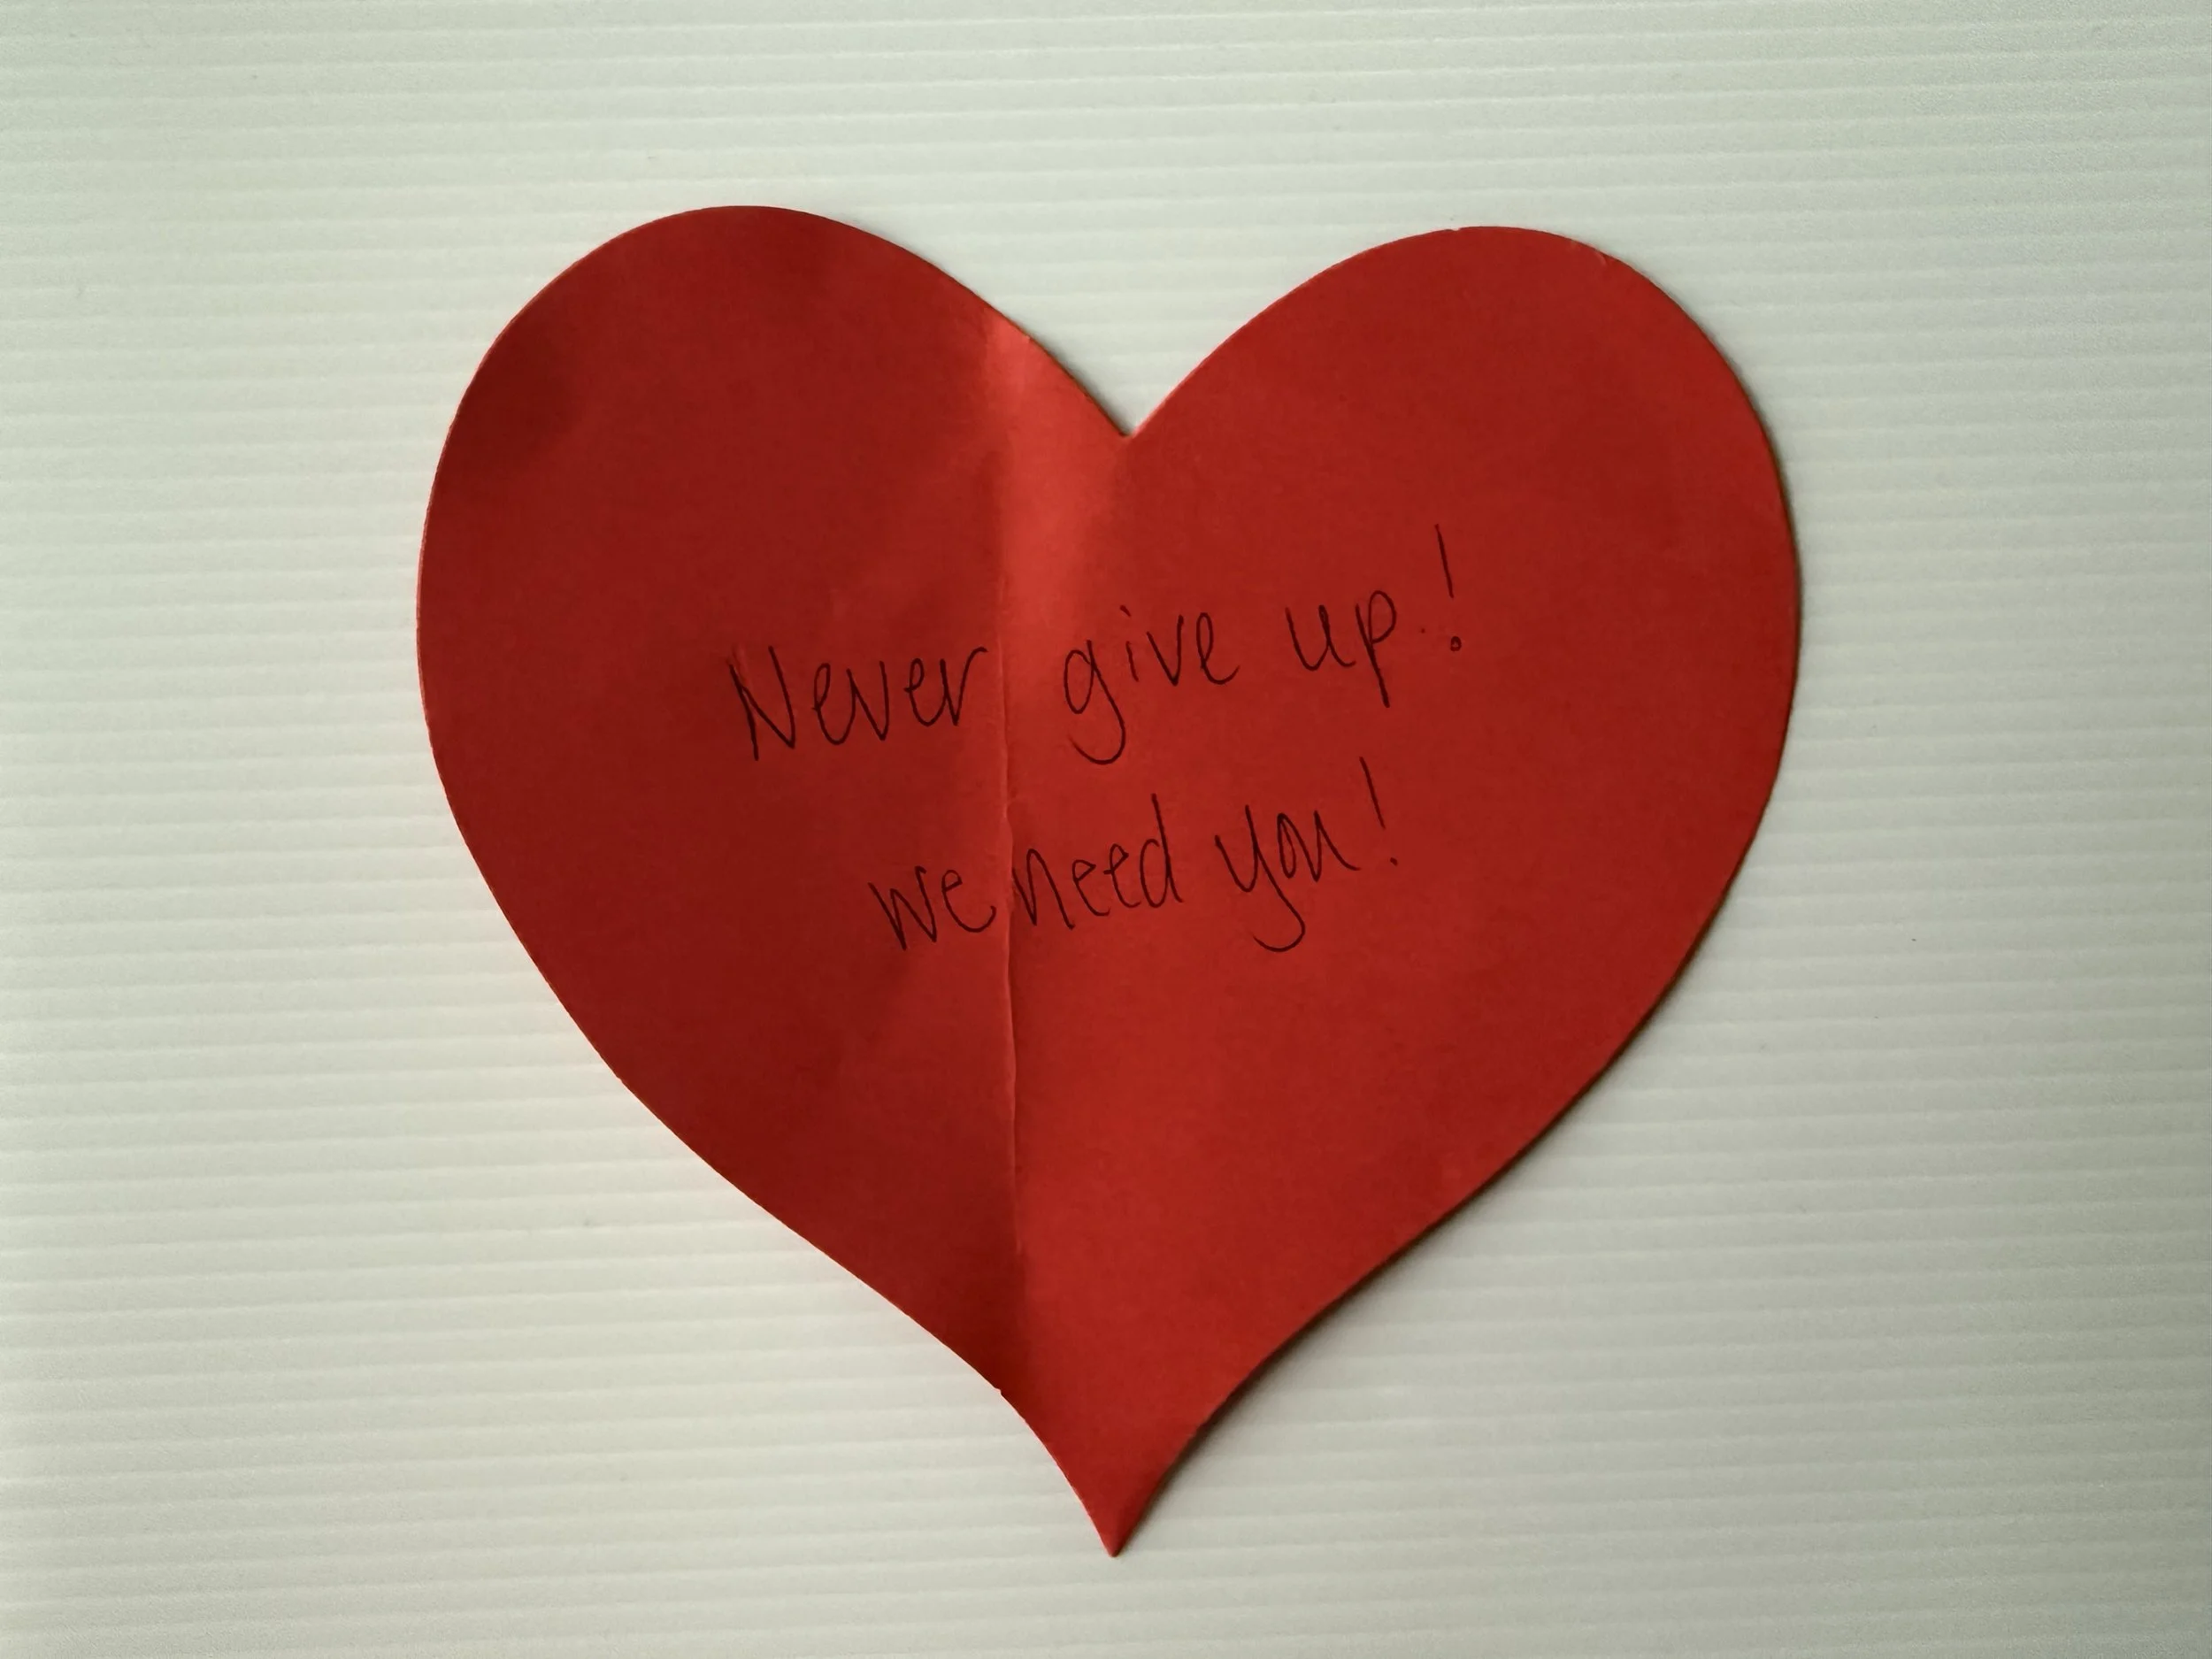 Never give up!
we need you!